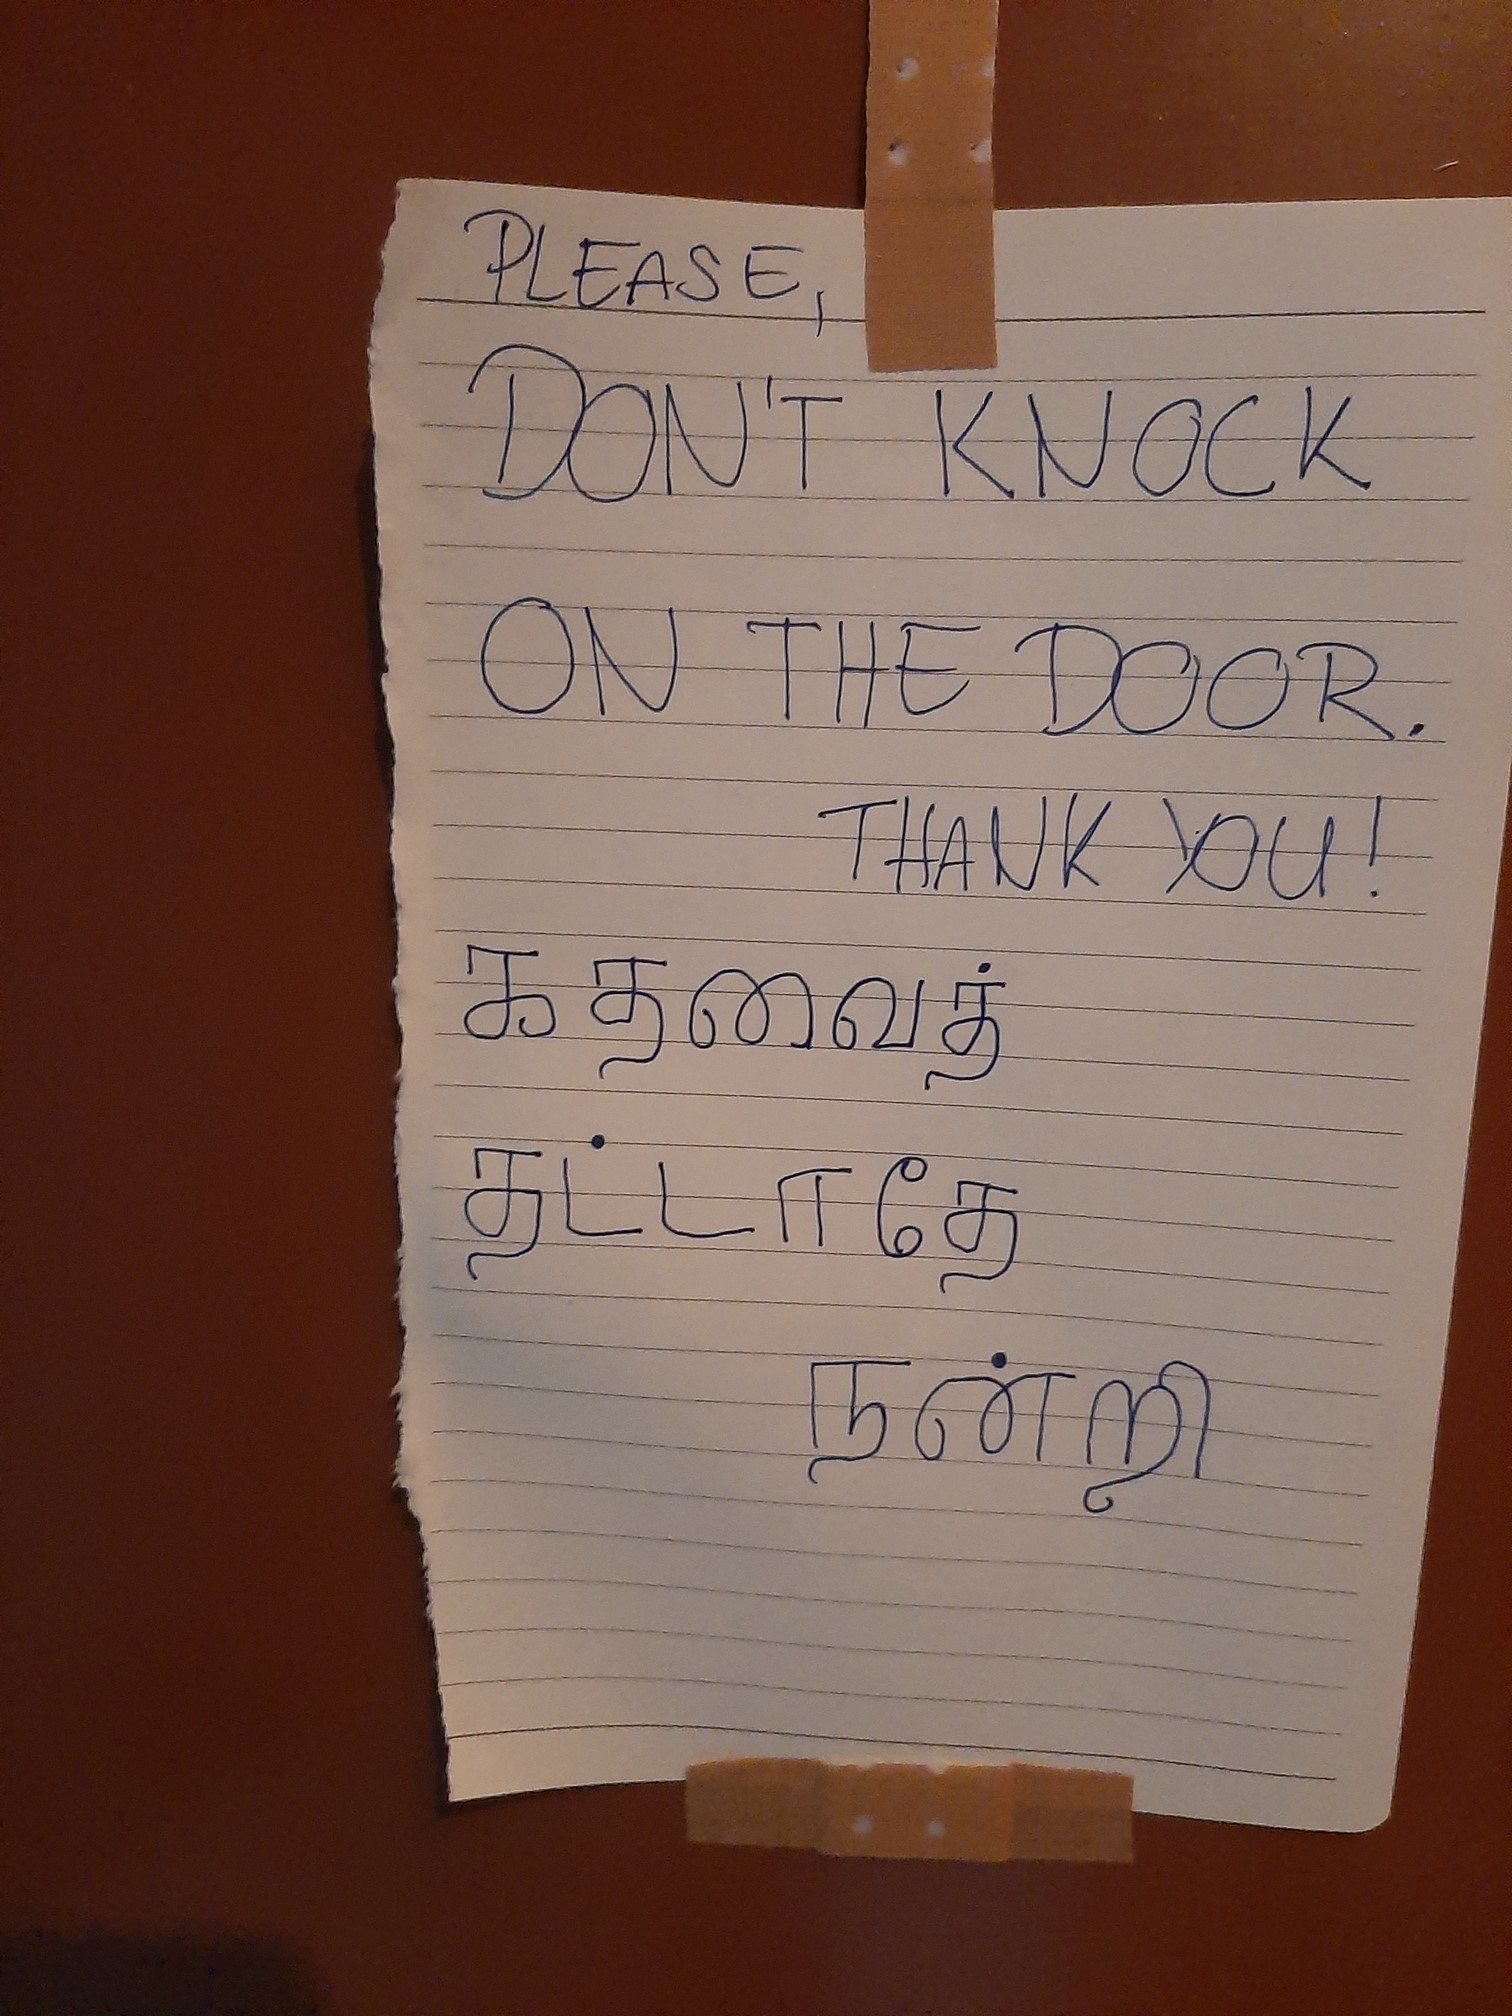 PLEASE,
DON'T KNOCK
ON THE DOOR.
THANK YOU!
கதவைத்
தட்டாதே
நன்றி